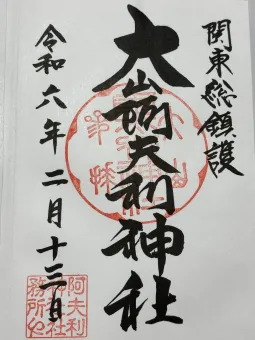 関東総鎮護
大山阿夫利神社
令和六年二月十三日
阿夫利